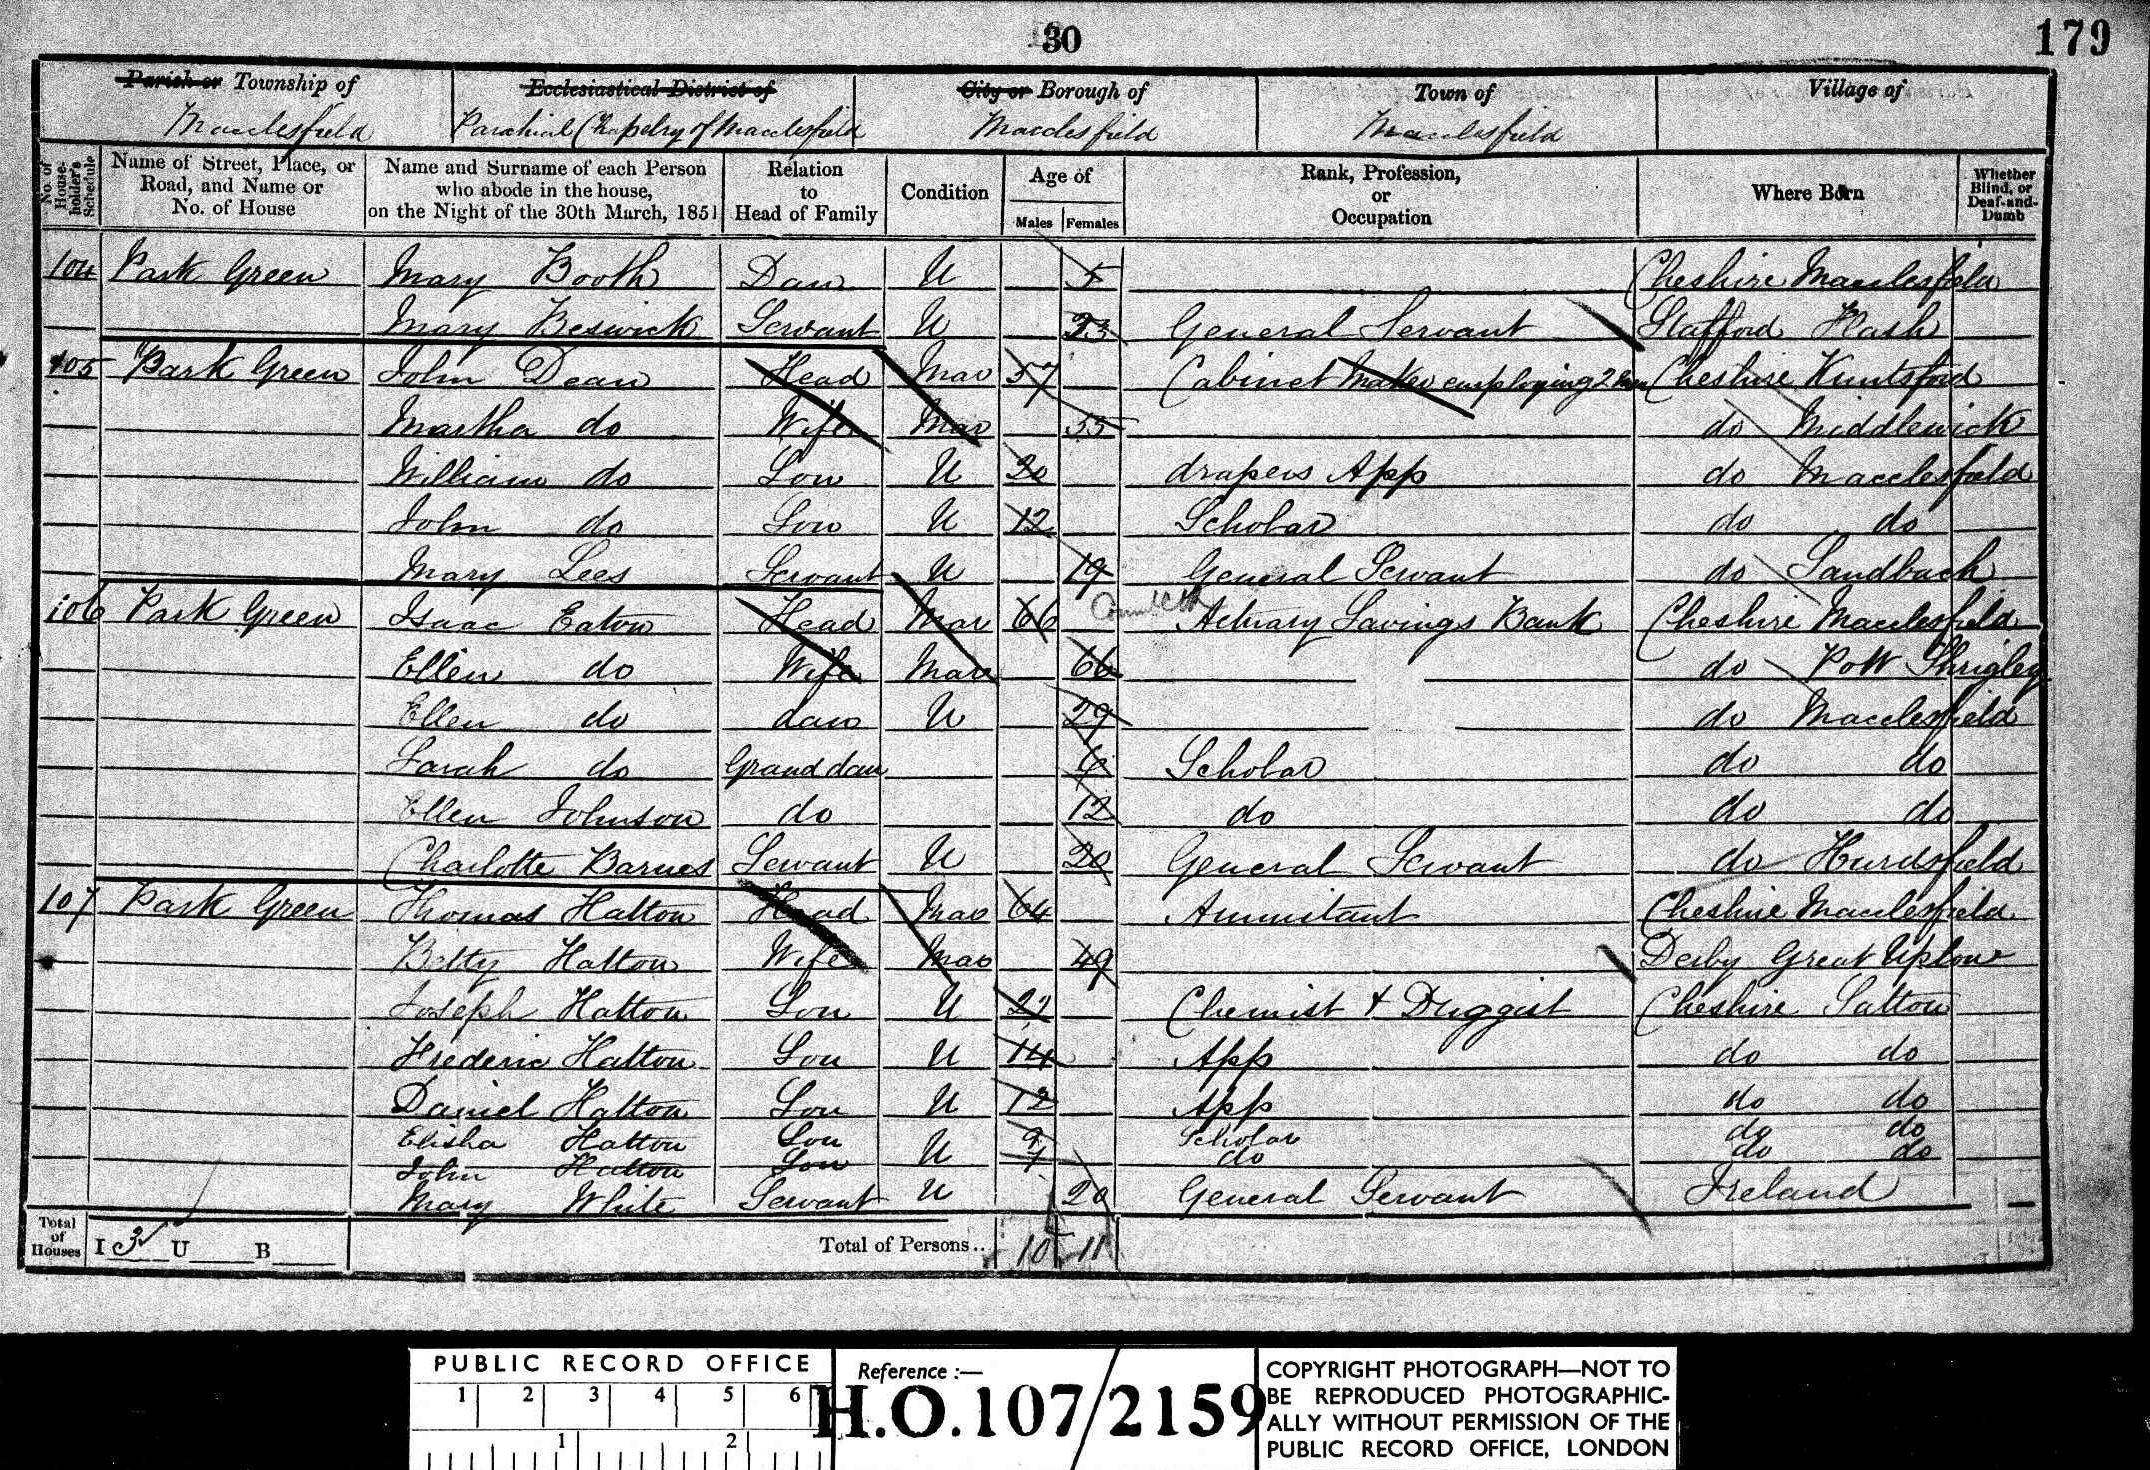 30
179
Parish or Township of
Macclesfield
Ecclesiastical District of
Parochial Chapelry of Macclesfield
City or Borough of
Macclesfield
Town of
Macclesfield
Village of
No. of House-holder's Schedule
Name of Street, Place, or Road, and Name or No. of House
Name and Surname of each Person who abode in the house, on the Night of the 30th March, 1851
Relation to Head of Family
Condition
Age of
Males Females
Rank, Profession, or Occupation
Where Born
Whether Blind, or Deaf-and-Dumb
104 Park Green Mary Booth Dau U 5 Cheshire Macclesfield
Mary Beswick Servant U 23 General Servant Stafford Flash
105 Park Green John Dean Head Mar 57 Cabinet Maker employing 2 men Cheshire Knutsford
Martha do Wife Mar 55 do Middlewick
William do Son U 20 drapers App do Macclesfield
John do Son U 12 Scholar do do
Mary Lees Servant U 19 General Servant do Sandbach
106 Park Green Isaac Eaton Head Mar 66 Actuary Savings Bank Cheshire Macclesfield
Ellen do Wife Mar 66 do Pott Shrigley
Ellen do dau U 29 do Macclesfield
Sarah do Grand dau 6 Scholar do do
Ellen Johnson do 12 do do do
Charlotte Barnes Servant U 20 General Servant do Hurdsfield
107 Park Green Thomas Hatton Head Mar 64 Annuitant Cheshire Macclesfield
Betty Hatton Wife Mar 49 Derby Great
Joseph Hatton Son U 22 Chemist & Druggist Cheshire Sutton
Frederic Hatton Son U 14 App do do
Daniel Hatton Son U 12 App do do
Elisha Hatton Son U 9 Scholar do do
John Hatton Son 7 do do do
Mary White Servant U 20 General Servant Ireland
Total of Houses I 3 U B Total of Persons.. 10 11
PUBLIC RECORD OFFICE
1 2 3 4 5 6
1 2
Reference :—
H.O. 107/2159
COPYRIGHT PHOTOGRAPH—NOT TO
BE REPRODUCED PHOTOGRAPHIC-
ALLY WITHOUT PERMISSION OF THE
PUBLIC RECORD OFFICE, LONDON